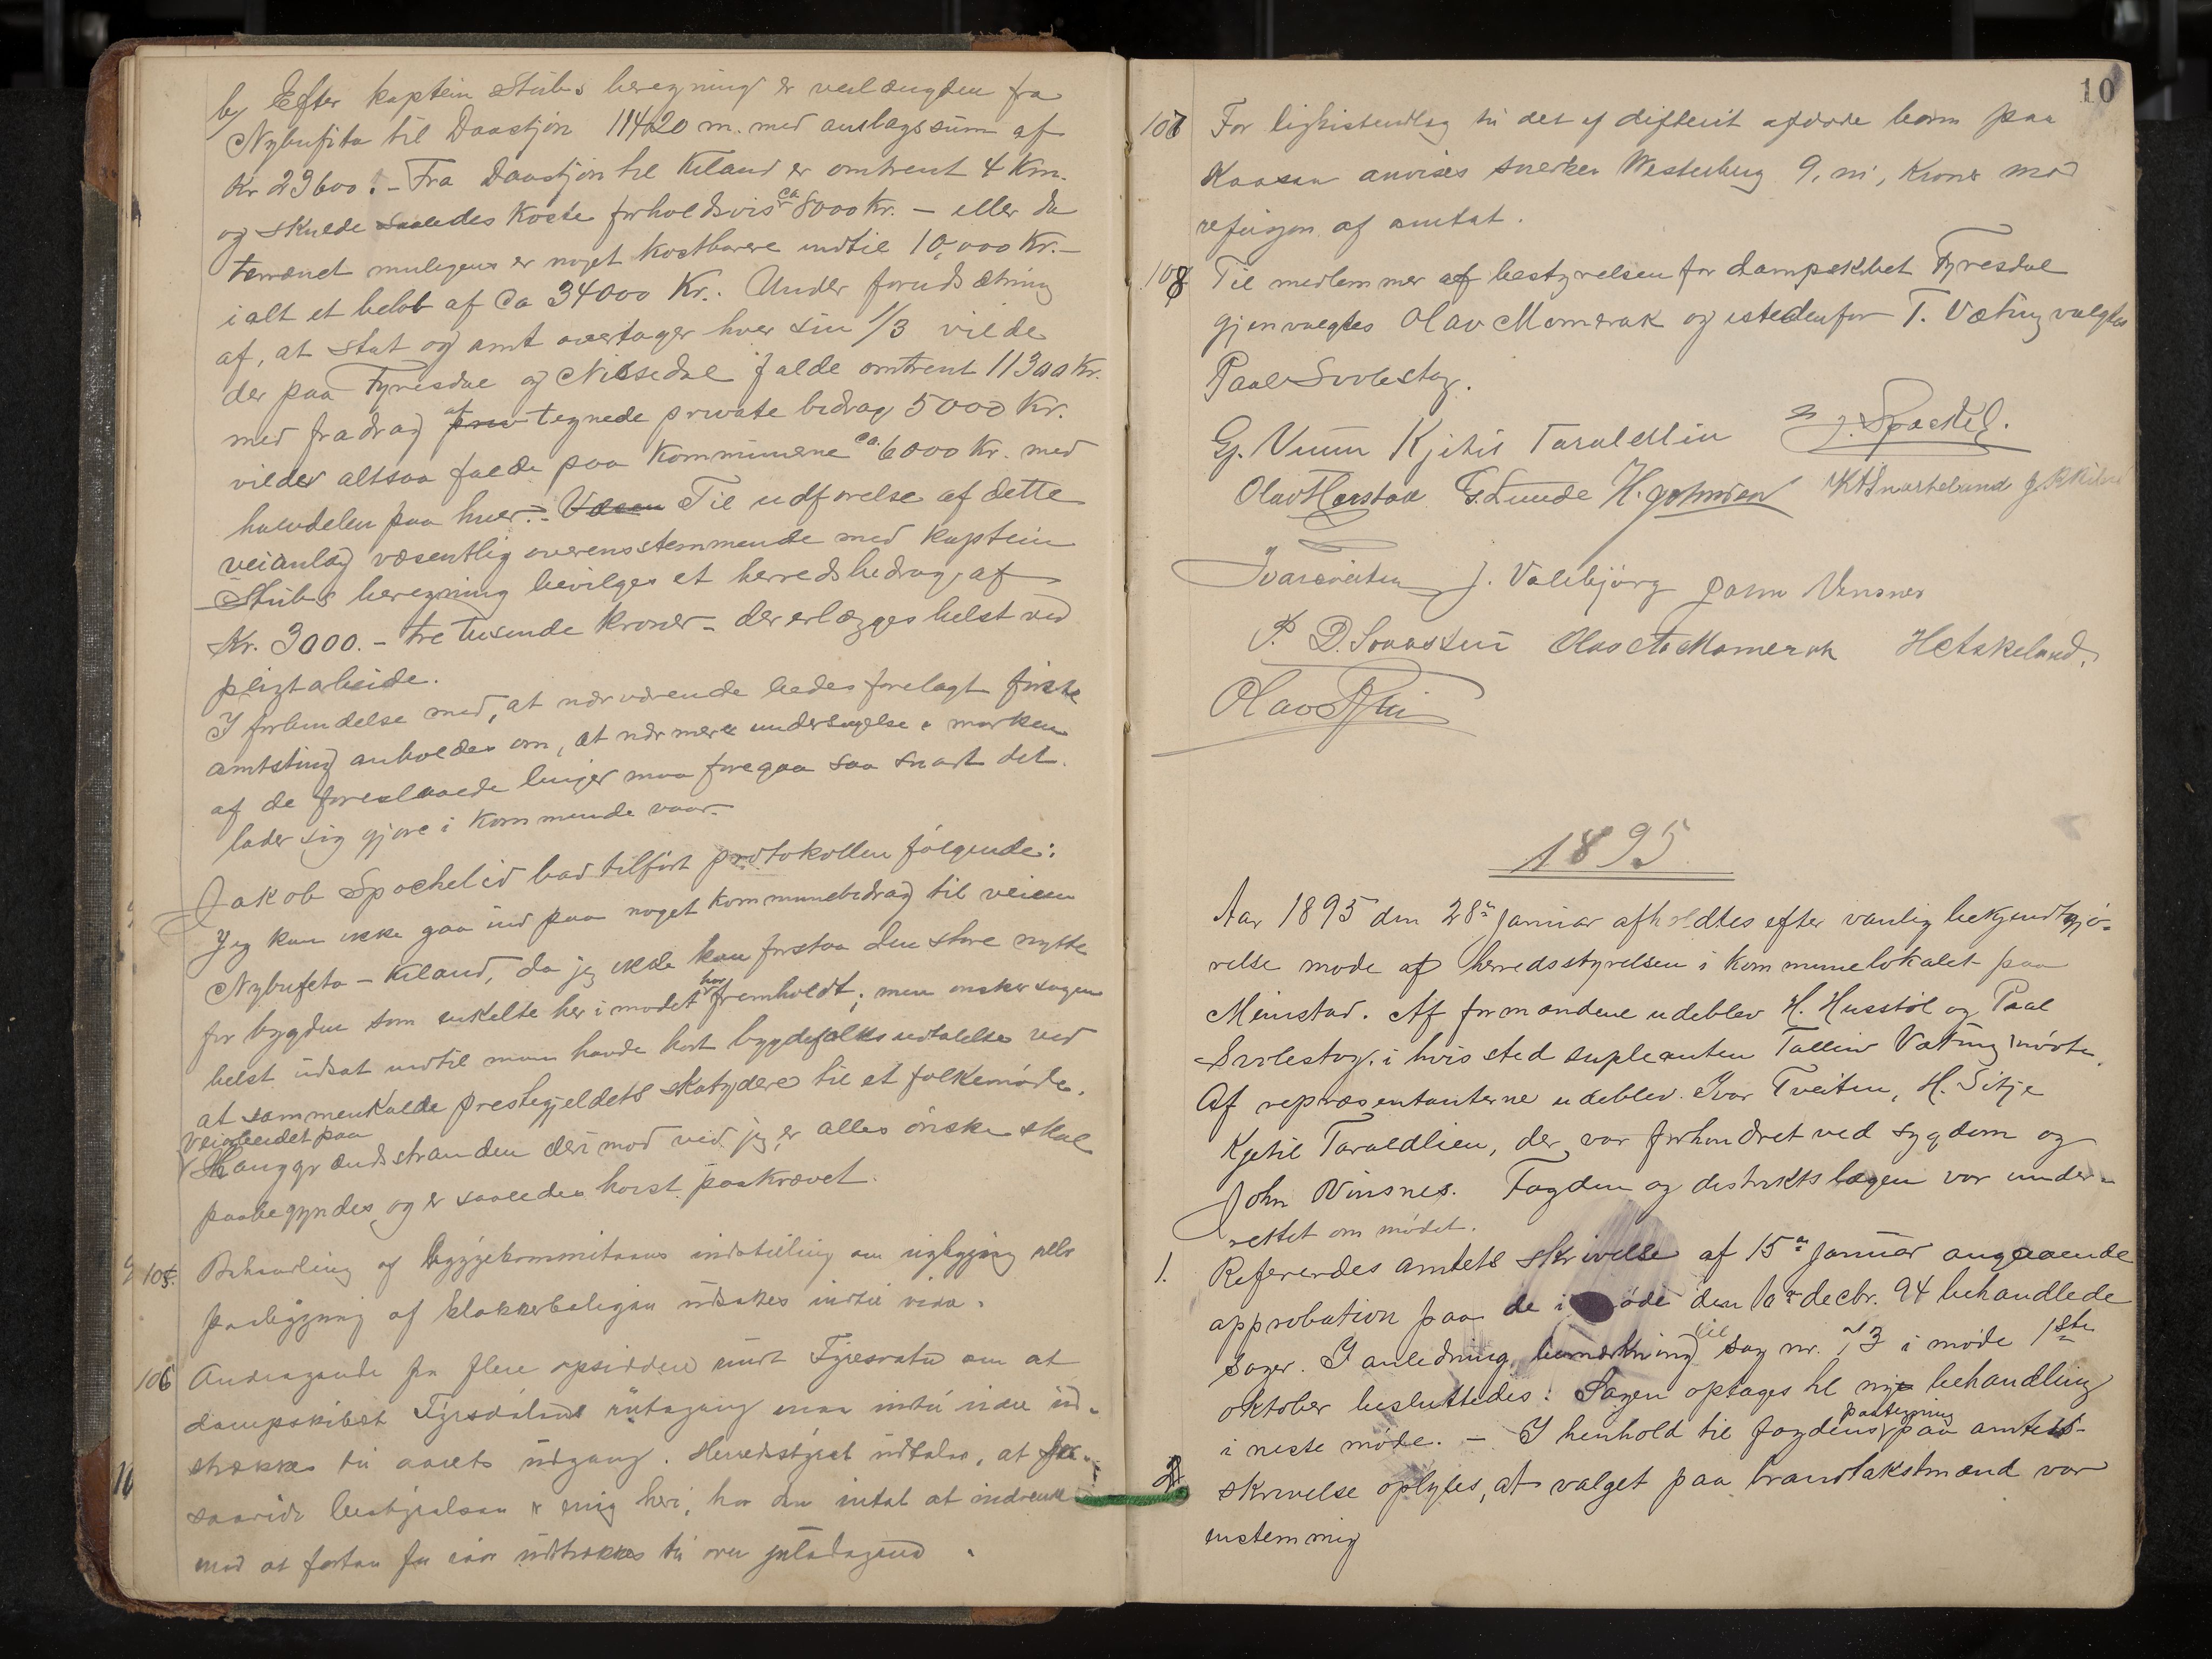 b/ Efter kaptein Stubs beregning er veilængden fra
Nybufita til Daastjøn 11420 m. med anslagssum af
Kr 23600. - Fra Daastjøn til Kiland er omtrent 4 Km.
og skulde saaledes koste forholdsvis ca 8000 Kr. - eller da
terrænet muligens er noget kostbarere indtil 10,000 Kr. -
ialt et beløb af Ca 34000 Kr. Under forudsætning
af, at stat og amt overtager hver sin 1/3 vilde
der paa Fyresdal og Nissedal falde omtrent 11300 Kr.
med fradrag af tegnede private bidrag 5000 Kr.
vilde altsaa falde paa Kommunerne ca. 6000 Kr. med
halvdelen paa hver. - Til udførelse af dette
veianlæg væsentlig overensstemmende med kaptein
Stubs beregning bevilges et herredsbidrag af
Kr. 3000. - tre tusende kroner - der erlægges helst ved
pligtarbeide.
I forbindelse med, at nærværende bedes forelagt første
amtsting anholdes om, at nærmere undersøgelse i marken
af de foreslaaede linjer maa foregaa saa snart det
lader sig gjøre i kommende vaar.
Jakob Spockelid bad tilført protokollen følgende:
Jeg kan ikke gaa ind paa noget kommunebidrag til veien
Nybufeta - Kiland, da jeg ikke kan forstaa den store nytte
for bygden som enkelte her i mødet har fremholdt; men ønsker sagen
helst udsat indtil man havde hørt bygdefolks udtalelse ved
at sammenkalde prestegjeldets skatydere til et folkemøde.
Veiarbeidet paa
Hauggrændsstranden derimod ved jeg er alles ønske skal
paabegyndes og er saaledes høist paakrævet.
105. Behandling af byggekommiteens indstilling om nybygging eller
paabygging af klokkerboligen udsættes indtil videre.
106 Andragende fra flere opsiddere rundt Fyresvatn om at
dampskibet Fyresdølens rutegang maa indtil videre ud-
strækkes til aarets udgang. Herredsstyret udtaler, at
saavidt bestyrelsen er enig heri, har den intet at indvende
mod at farten for iaar udstrækkes til over juledagene.
10
107 For ligkistendlag til det af difterit afdøde barn paa
Kaasen anvises snerker Westerberg 9, ni, Kroner mod
refusjon af amtet.
108 Til medlemmer af bestyrelsen for dampskibet Fyresdøl
gjenvalgtes Olav Momrak og istedenfor T. Væting valgtes
Paal Svolestog.
G. Veum Kjetil Taraldlien J. Spockelid.
Olav Herstad G. Lunde H. Johnsen K. K. Snarteland
Ivar Tveiten J. Valebjørg John Vinsnes
P. D. Olav Momrak H Askeland.
Olav
1895
Aar 1895 den 28de januar afholdtes efter vanlig bekjendtgjø-
relse møde af herredsstyrelsen i kommunelokalet paa
Meinstad. Af formændene udeblev H. Husstøl og Paal
Svolestog, i hvis sted supleanten Tallev Væting mødte.
Af repræsentanterne udeblev Ivar Tveiten, H. Sitje
Kjetil Taraldlien, der var forhindret ved sygdom og
John Vinsnes. Fogden og distriktslægen var under-
rettet om mødet.
1. Refereredes amtets skrivelse af 15de januar angaaende
approbation paa de i møde den 10de decbr. 94 behandlede
sager. I anledning bemærkning til sag nr. 73 i møde 1ste
oktober besluttedes: Sagen optages til ny behandling
i neste møde. - I henhold til fogdens paategning paa amtets
2 skrivelse oplyses, at valget paa brandtakstmænd var
enstemmig